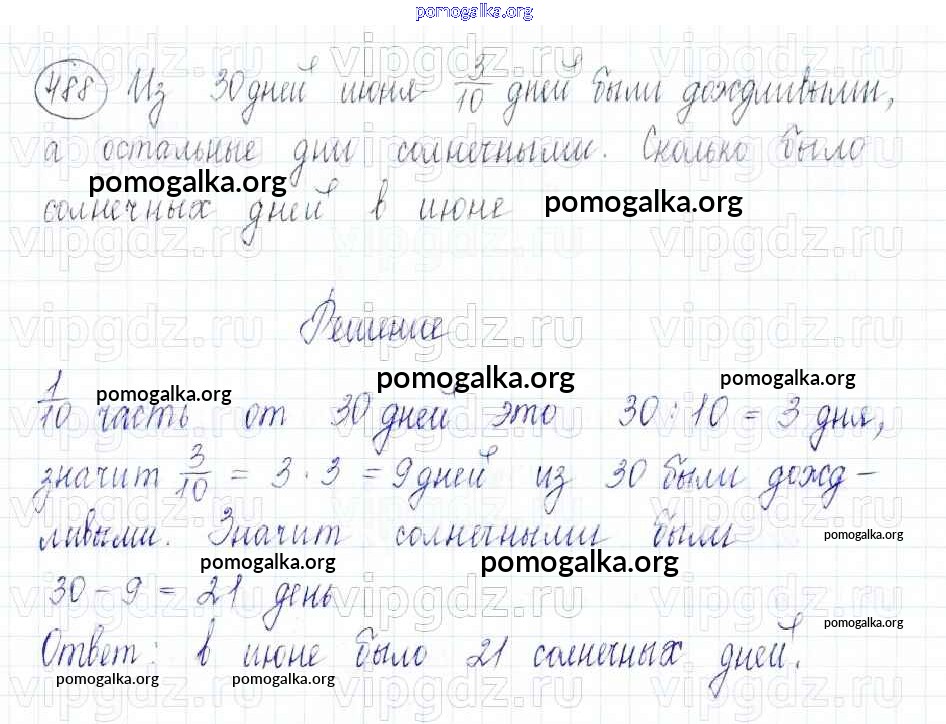 pomogalka.org
488 Из 30 дней июня 3/10 дней были дождливыми,
а остальные дни солнечными. Сколько было
pomogalka.org
солнечных дней в июне pomogalka.org
Решение
pomogalka.org pomogalka.org pomogalka.org
1/10 часть от 30 дней это 30 : 10 = 3 дня,
значит 3/10 = 3 · 3 = 9 дней из 30 были дожд-
ливыми. Значит солнечными были pomogalka.org
pomogalka.org pomogalka.org
30 - 9 = 21 день
pomogalka.org
Ответ: в июне было 21 солнечных дней.
pomogalka.org pomogalka.org
vipgdz.ru